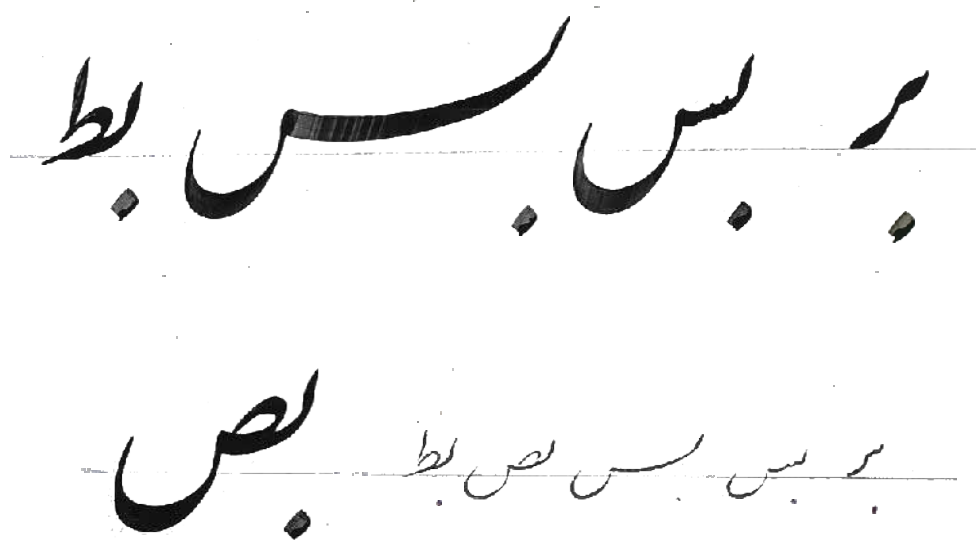 بر بس بس بط
بص
بر بس بس بص بط